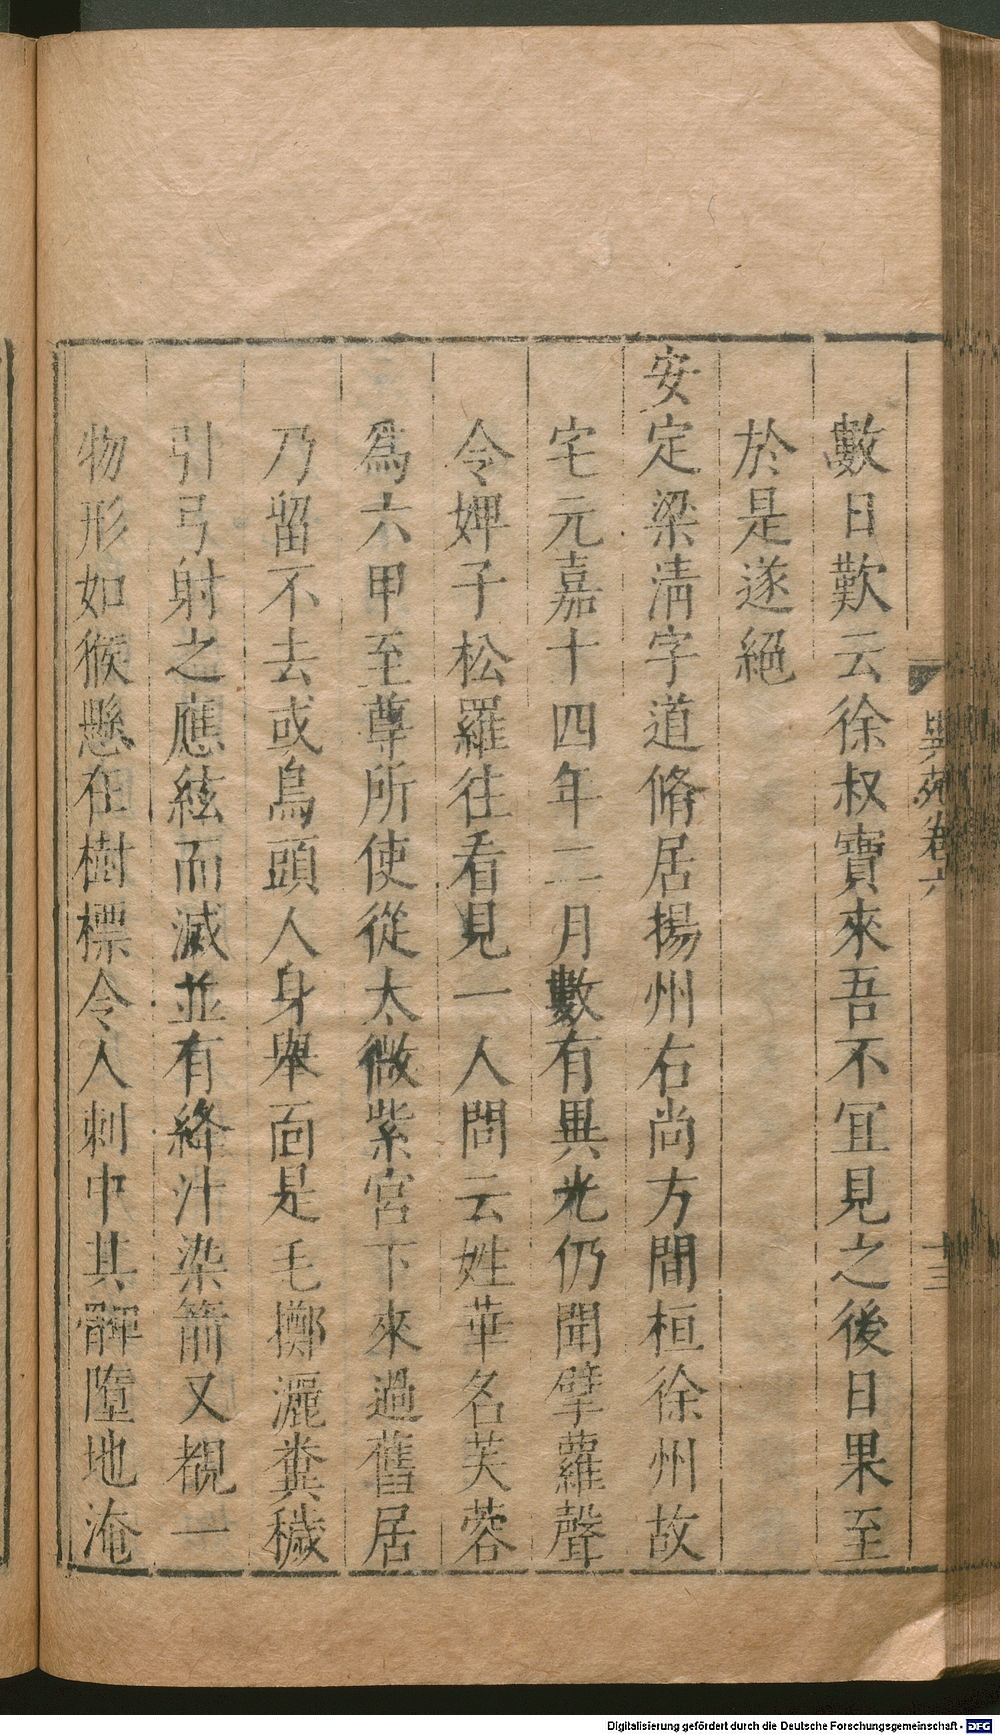 數日歎云徐叔寶來吾不冝見之後日果至
於是遂絕
安定梁清字道脩居揚州右尚方間桓徐州故
宅元嘉十四年二月數有異光仍聞擘蘿聲
令婢子松羅往看見一人問云姓華名芙蓉
爲六甲至尊所使從太微紫宮下來過舊居
乃留不去或鳥頭人身舉面是毛擲灑糞穢
引弓射之應絃而滅並有絳汁染箭又覩一
物形如猴懸在樹標令人刺中其髀墮地淹
異苑卷六
十三
Digitalisierung gefördert durch die Deutsche Forschungsgemeinschaft - DFG